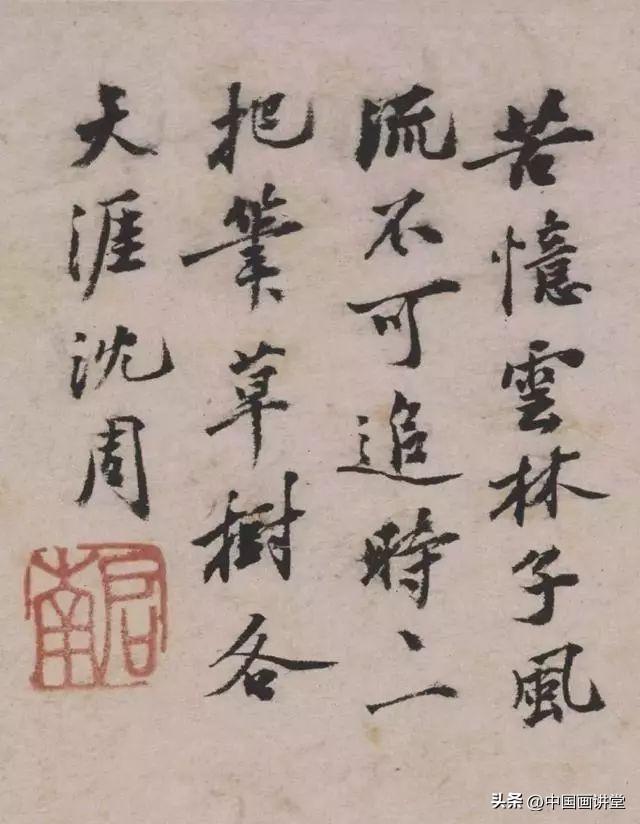 苦憶雲林子風
流不可追時〻一
把筆草樹各
天涯沈周
启南
头条 @中国画讲堂